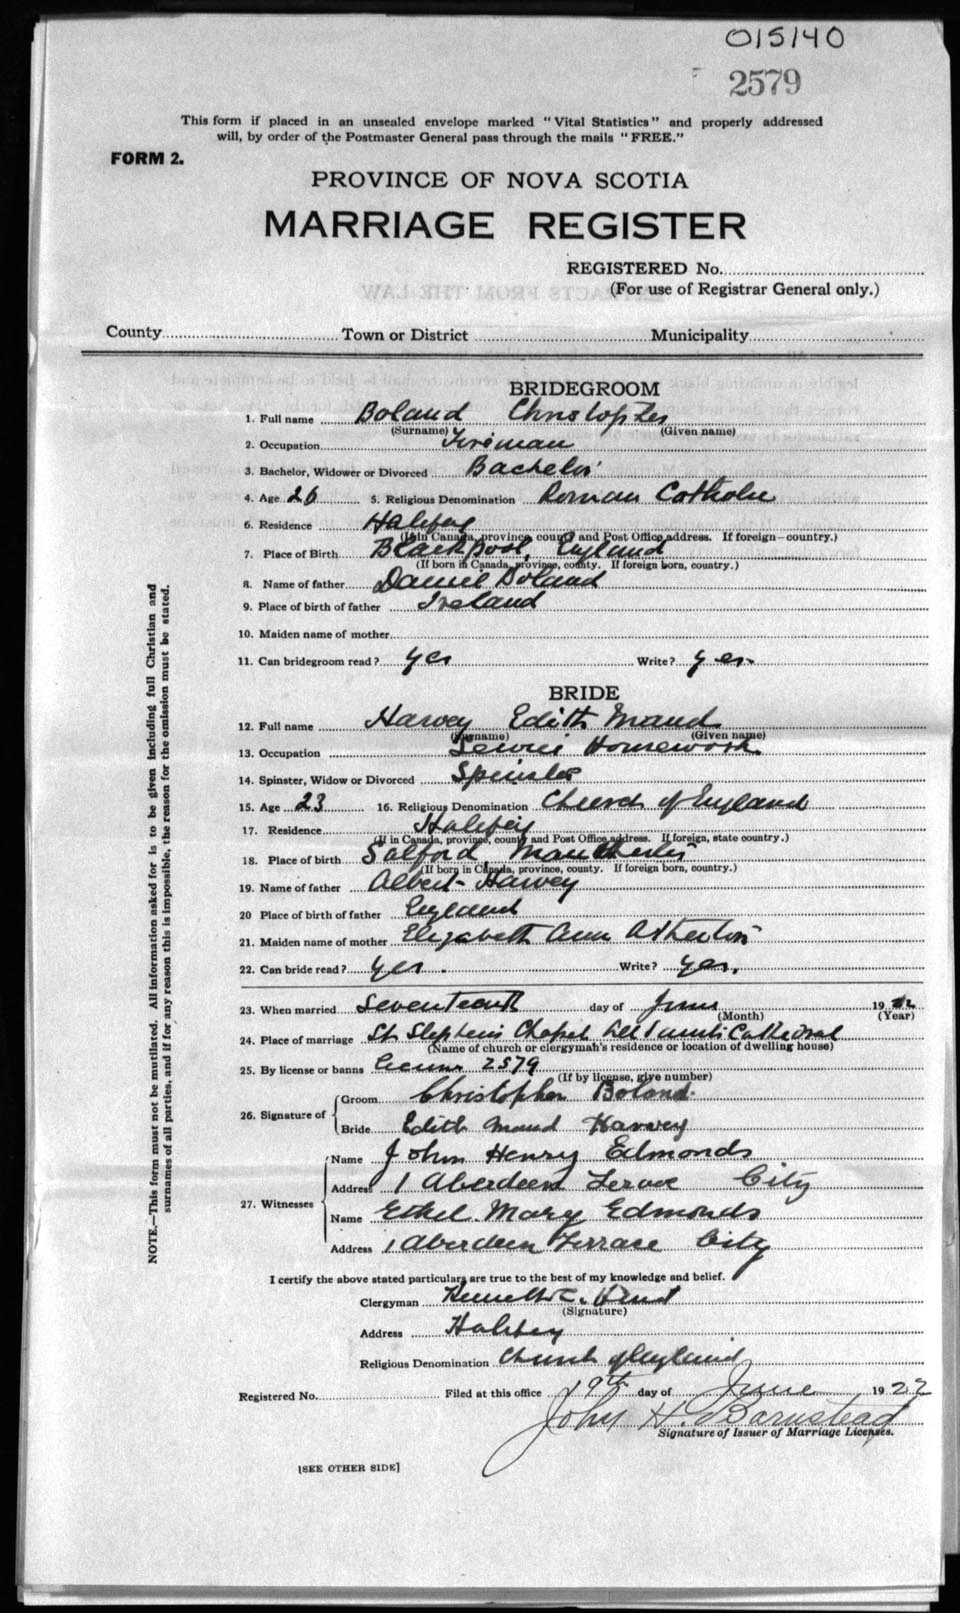 015140
2579
This form if placed in an unsealed envelope marked "Vital Statistics" and properly addressed
will, by order of the Postmaster General pass through the mails "FREE."
FORM 2.
PROVINCE OF NOVA SCOTIA
MARRIAGE REGISTER
REGISTERED No.
(For use of Registrar General only.)
County Town or District Municipality
BRIDEGROOM
1. Full name Boland Christopher
(Surname) (Given name)
2. Occupation Fireman
3. Bachelor, Widower or Divorced Bachelor
4. Age 26 5. Religious Denomination Roman Catholic
6. Residence Halifax
(If in Canada, province, county and Post Office address. If foreign—country.)
7. Place of Birth Blackpool, England
(If born in Canada, province, county. If foreign born, country.)
8. Name of father Daniel Boland
9. Place of birth of father Ireland
10. Maiden name of mother
11. Can bridegroom read? yes Write? yes.
BRIDE
12. Full name Harvey Edith Maud
(Surname) (Given name)
13. Occupation Homework
14. Spinster, Widow or Divorced Spinster
15. Age 23 16. Religious Denomination Church of England
17. Residence Halifax
(If in Canada, province, county and Post Office address. If foreign, state country.)
18. Place of birth Salford Manchester
(If born in Canada, province, county. If foreign born, country.)
19. Name of father Albert Harvey
20 Place of birth of father England
21. Maiden name of mother Elizabeth Ann Atherton
22. Can bride read? yes. Write? yes.
23. When married Seventeenth day of June 19 22
(Month) (Year)
24. Place of marriage St Stephen's Chapel All Saints Cathedral
(Name of church or clergyman's residence or location of dwelling house)
25. By license or banns license 2579
(If by license, give number)
26. Signature of Groom Christopher Boland.
Bride Edith Maud Harvey
27. Witnesses Name John Henry Edmonds
Address 1 Aberdeen Terrace City
Name Ethel Mary Edmonds
Address 1 Aberdeen Terrace City
I certify the above stated particulars are true to the best of my knowledge and belief.
Clergyman Kenneth C. Hind
(Signature)
Address Halifax
Religious Denomination Church of England
Registered No. Filed at this office 19th day of June 1922
John H. Barnstead
Signature of Issuer of Marriage Licenses.
[SEE OTHER SIDE]
NOTE.—This form must not be mutilated. All information asked for is to be given including full Christian and
surnames of all parties, and if for any reason this is impossible, the reason for the omission must be stated.